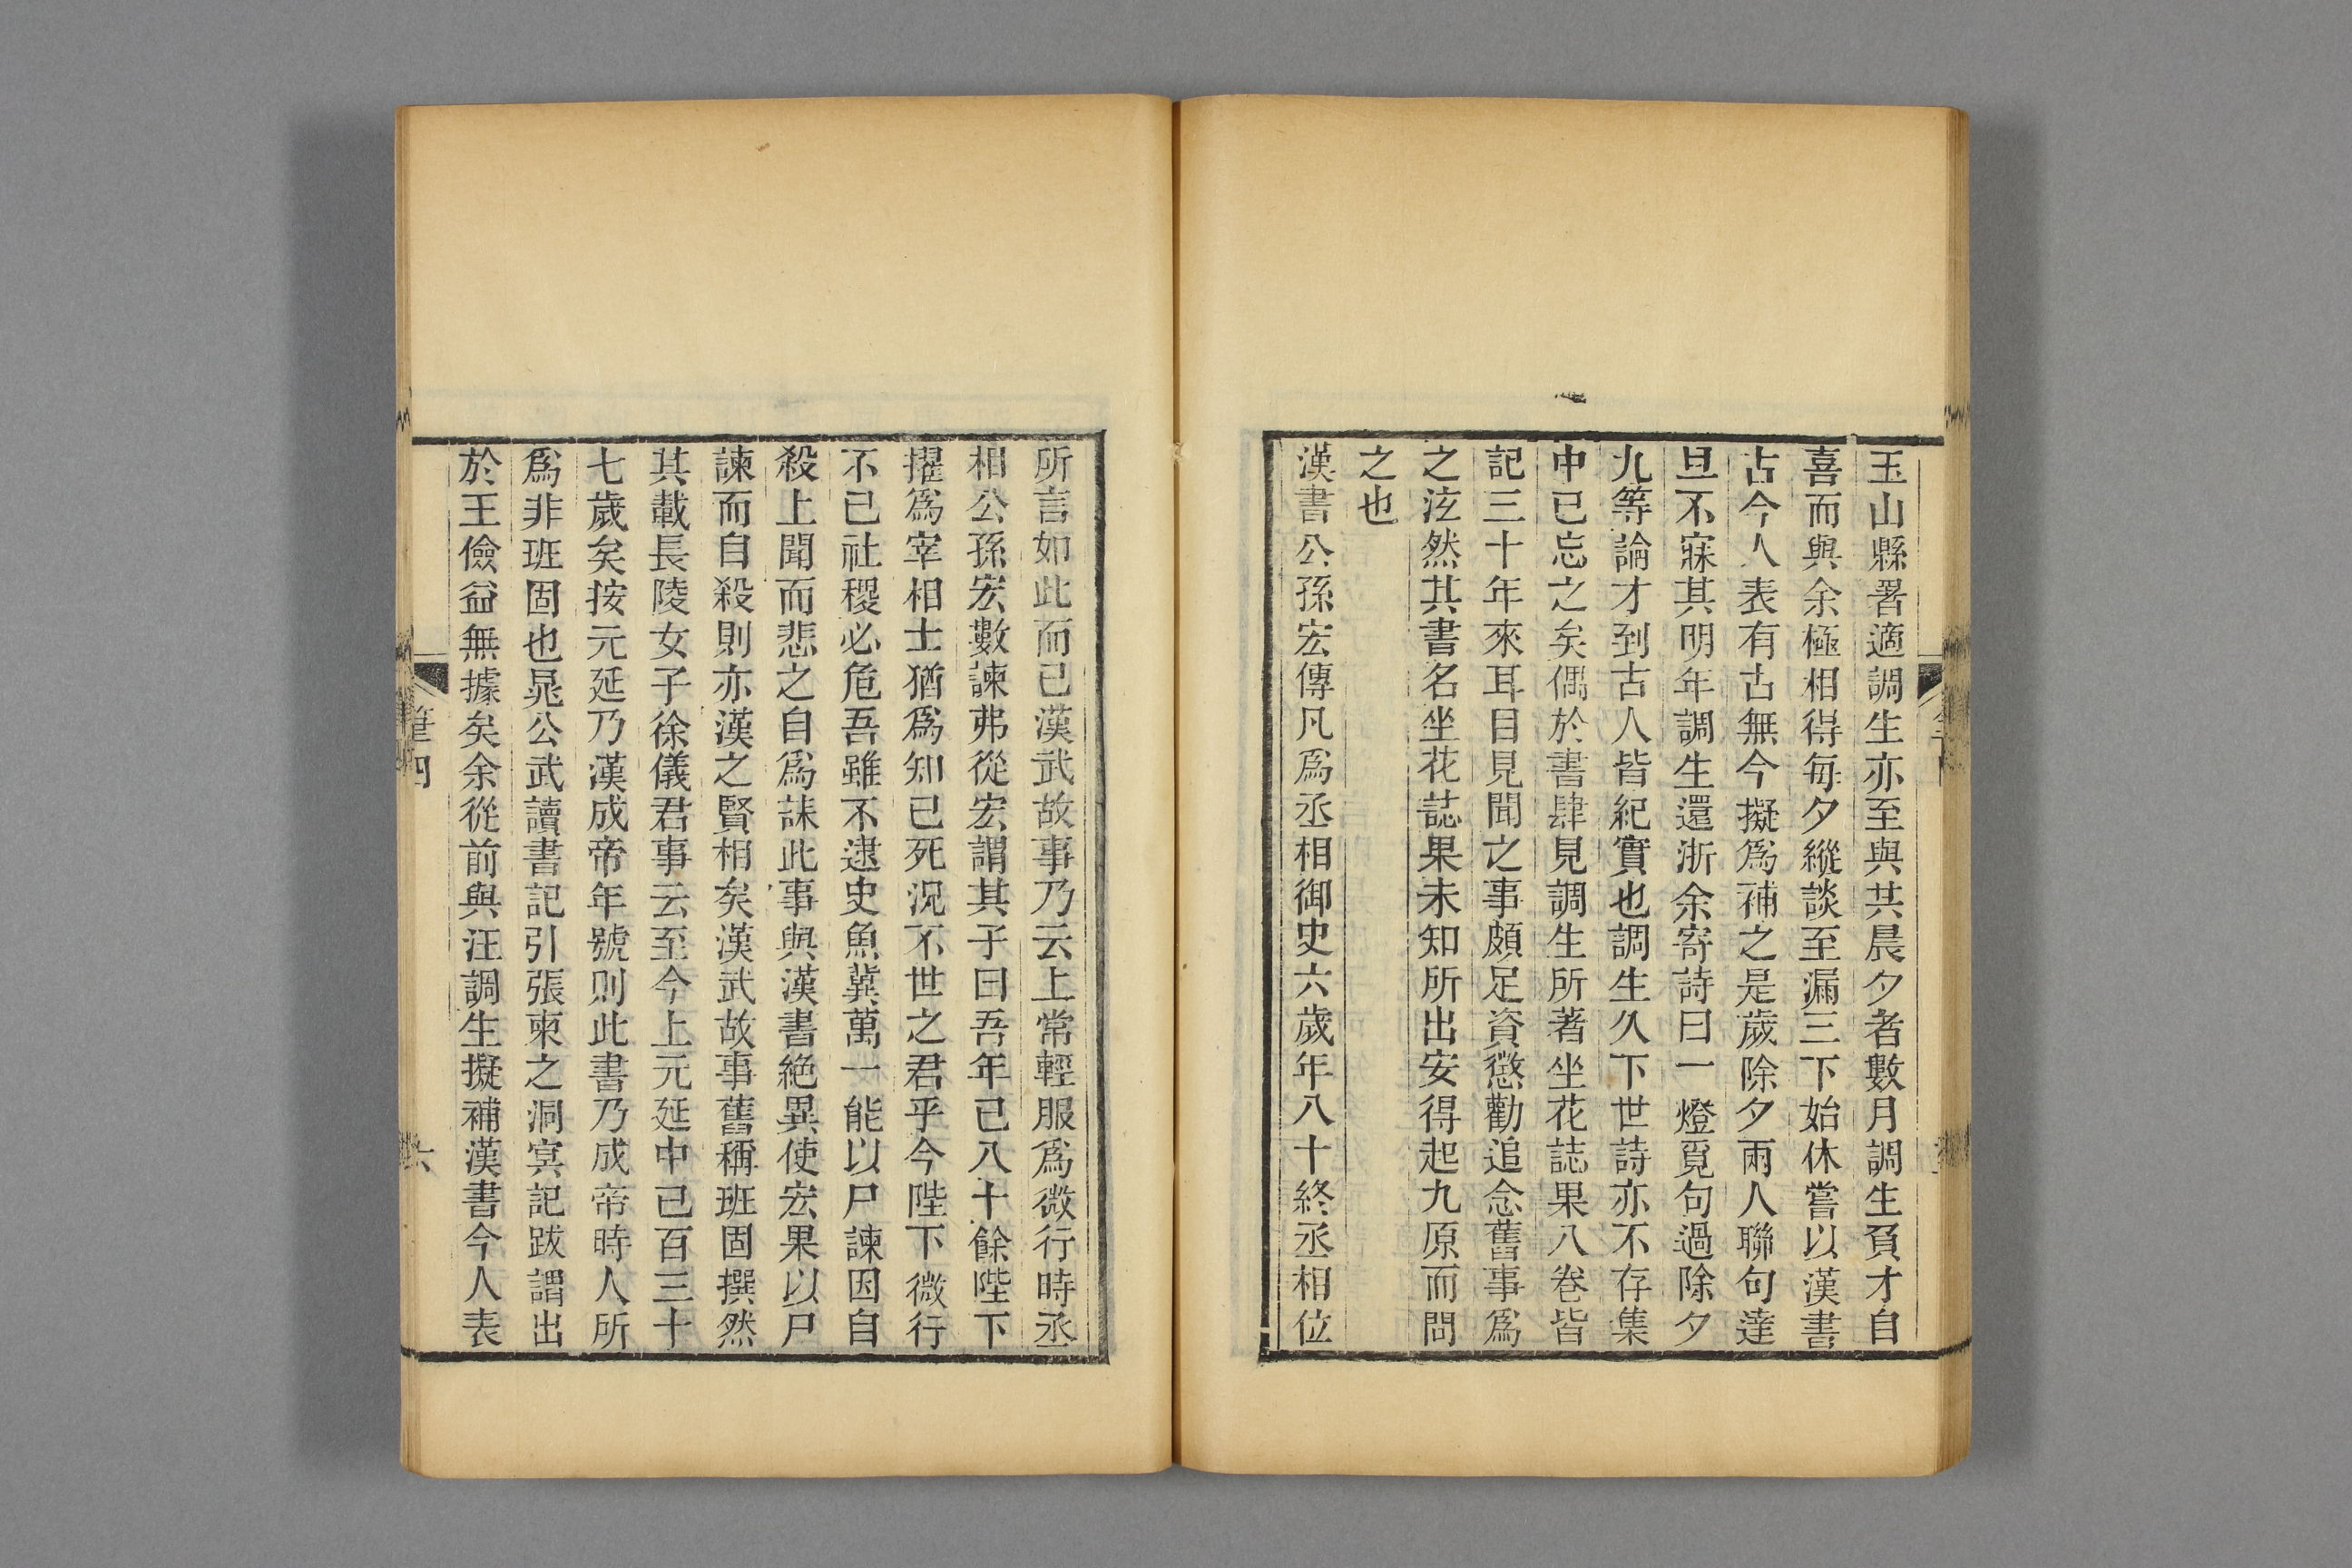 玉山縣署適調生亦至與共晨夕者數月調生負才自
喜而與余極相得每夕縱談至漏三下始休嘗以漢書
古今人表有古無今擬爲補之是歲除夕兩人聯句達
旦不寐其明年調生還浙余寄詩曰一燈覓句過除夕
九等論才到古人皆紀實也調生久下世詩亦不存集
中已忘之矣偶於書肆見調生所著坐花誌果八卷皆
記三十年來耳目見聞之事頗足資懲勸追念舊事爲
之泫然其書名坐花誌果未知所出安得起九原而問
之也
漢書公孫宏傳凡爲丞相御史六歲年八十終丞相位
所言如此而已漢武故事乃云上常輕服爲微行時丞
相公孫宏數諫弗從宏謂其子曰吾年已八十餘陛下
擢爲宰相士猶爲知已死況不世之君乎今陛下微行
不已社稷必危吾雖不逮史魚冀萬一能以尸諫因自
殺上聞而悲之自爲誄此事與漢書絶異使宏果以尸
諫而自殺則亦漢之賢相矣漢武故事舊稱班固撰然
其載長陵女子徐儀君事云至今上元延中已百三十
七歲矣按元延乃漢成帝年號則此書乃成帝時人所
爲非班固也晁公武讀書記引張柬之洞冥記跋謂出
於王儉益無據矣余從前與汪調生擬補漢書今人表
筆四
六